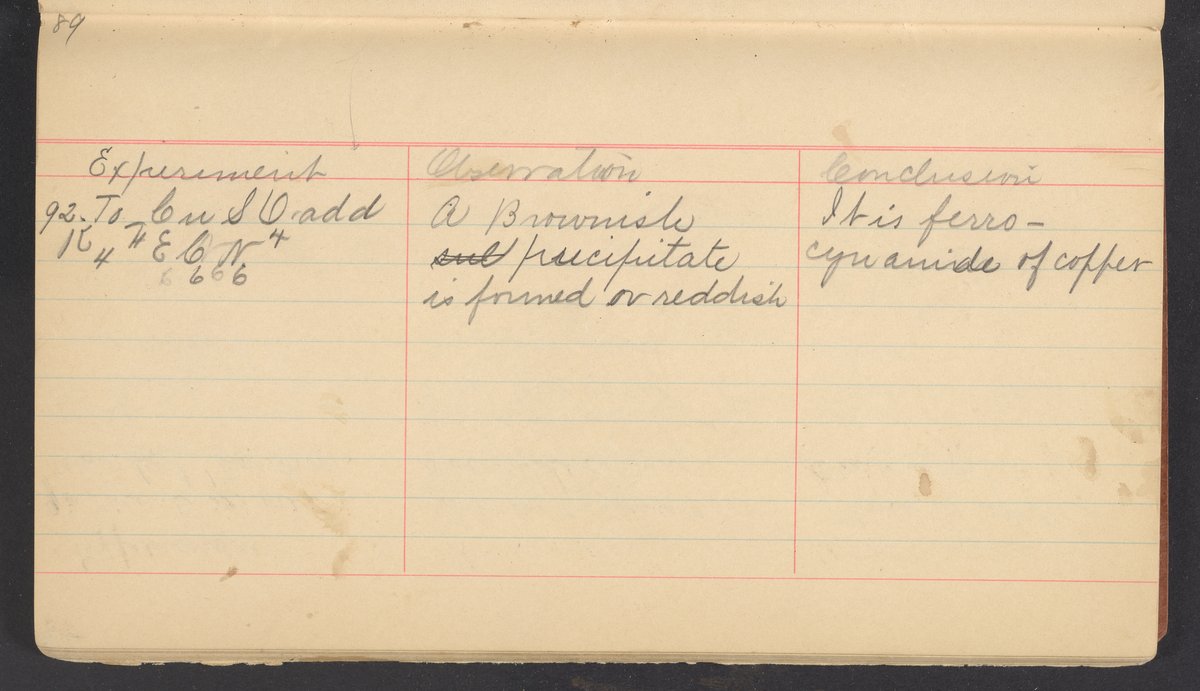 89
Experiment
Observation
Conclusion
92. To Cu S O4 add
K4 Fe C6 N6
A Brownish
sul precipitate
is formed or reddish
It is ferro-
cynamide of copper